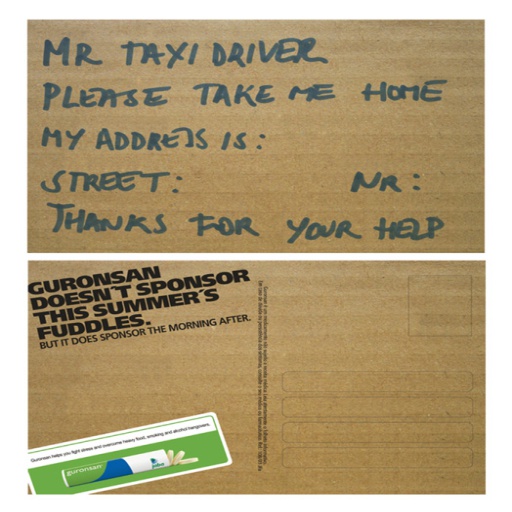 MR TAXI DRIVER
PLEASE TAKE ME HOME
MY ADDRESS IS:
STREET: NR:
THANKS FOR YOUR HELP
GURONSAN
DOESN'T SPONSOR
THIS SUMMER'S
FUDDLES.
BUT IT DOES SPONSOR THE MORNING AFTER.
Guronsan helps you fight stress and overcome heavy food, smoking and alcohol hangovers.
guronsan